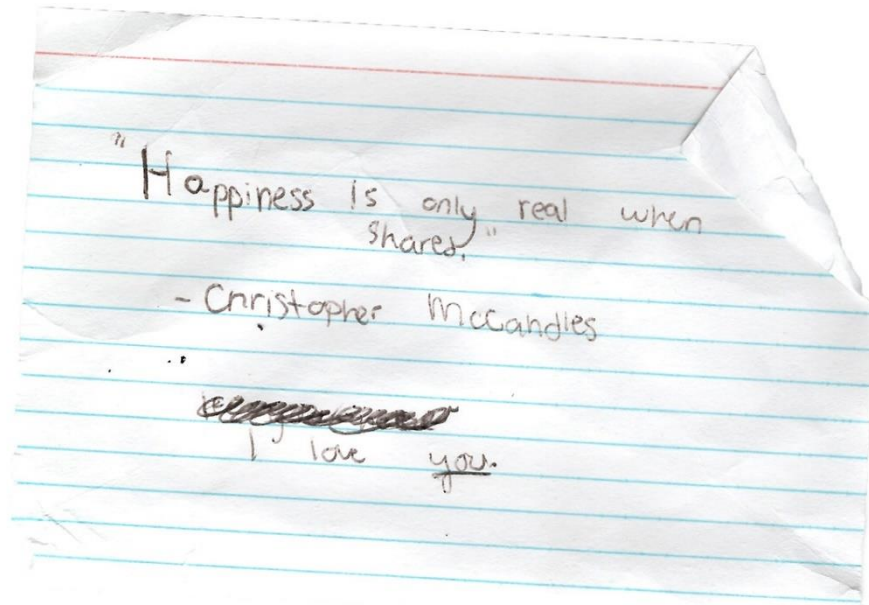 "Happiness is only real when
shared."
- Christopher McCandles
I love you.